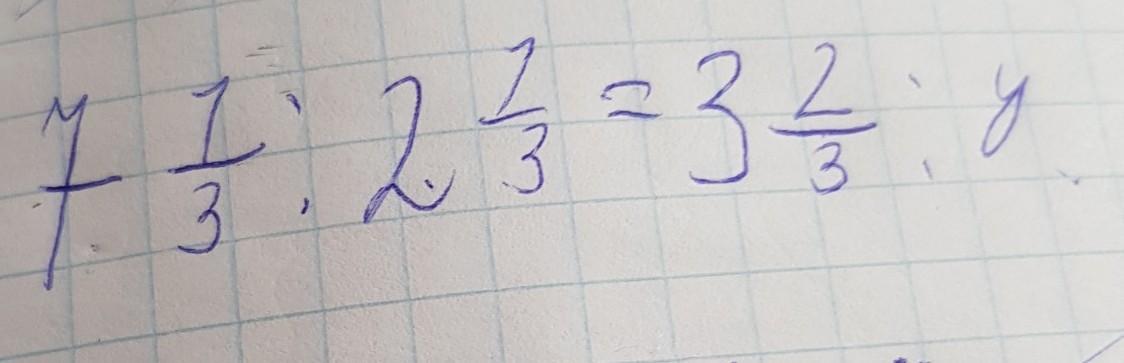 7 1/3 : 2 1/3 = 3 2/3 : y